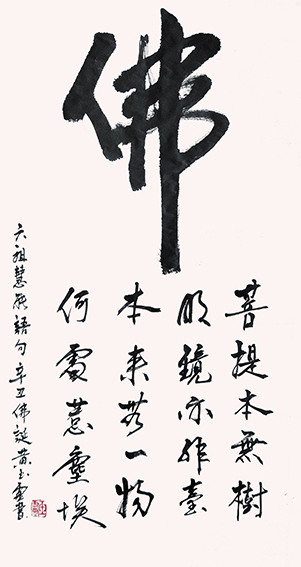 佛
菩提本無樹
明鏡亦非臺
本来無一物
何處惹塵埃
六祖慧能語句 辛丑佛誕 黄